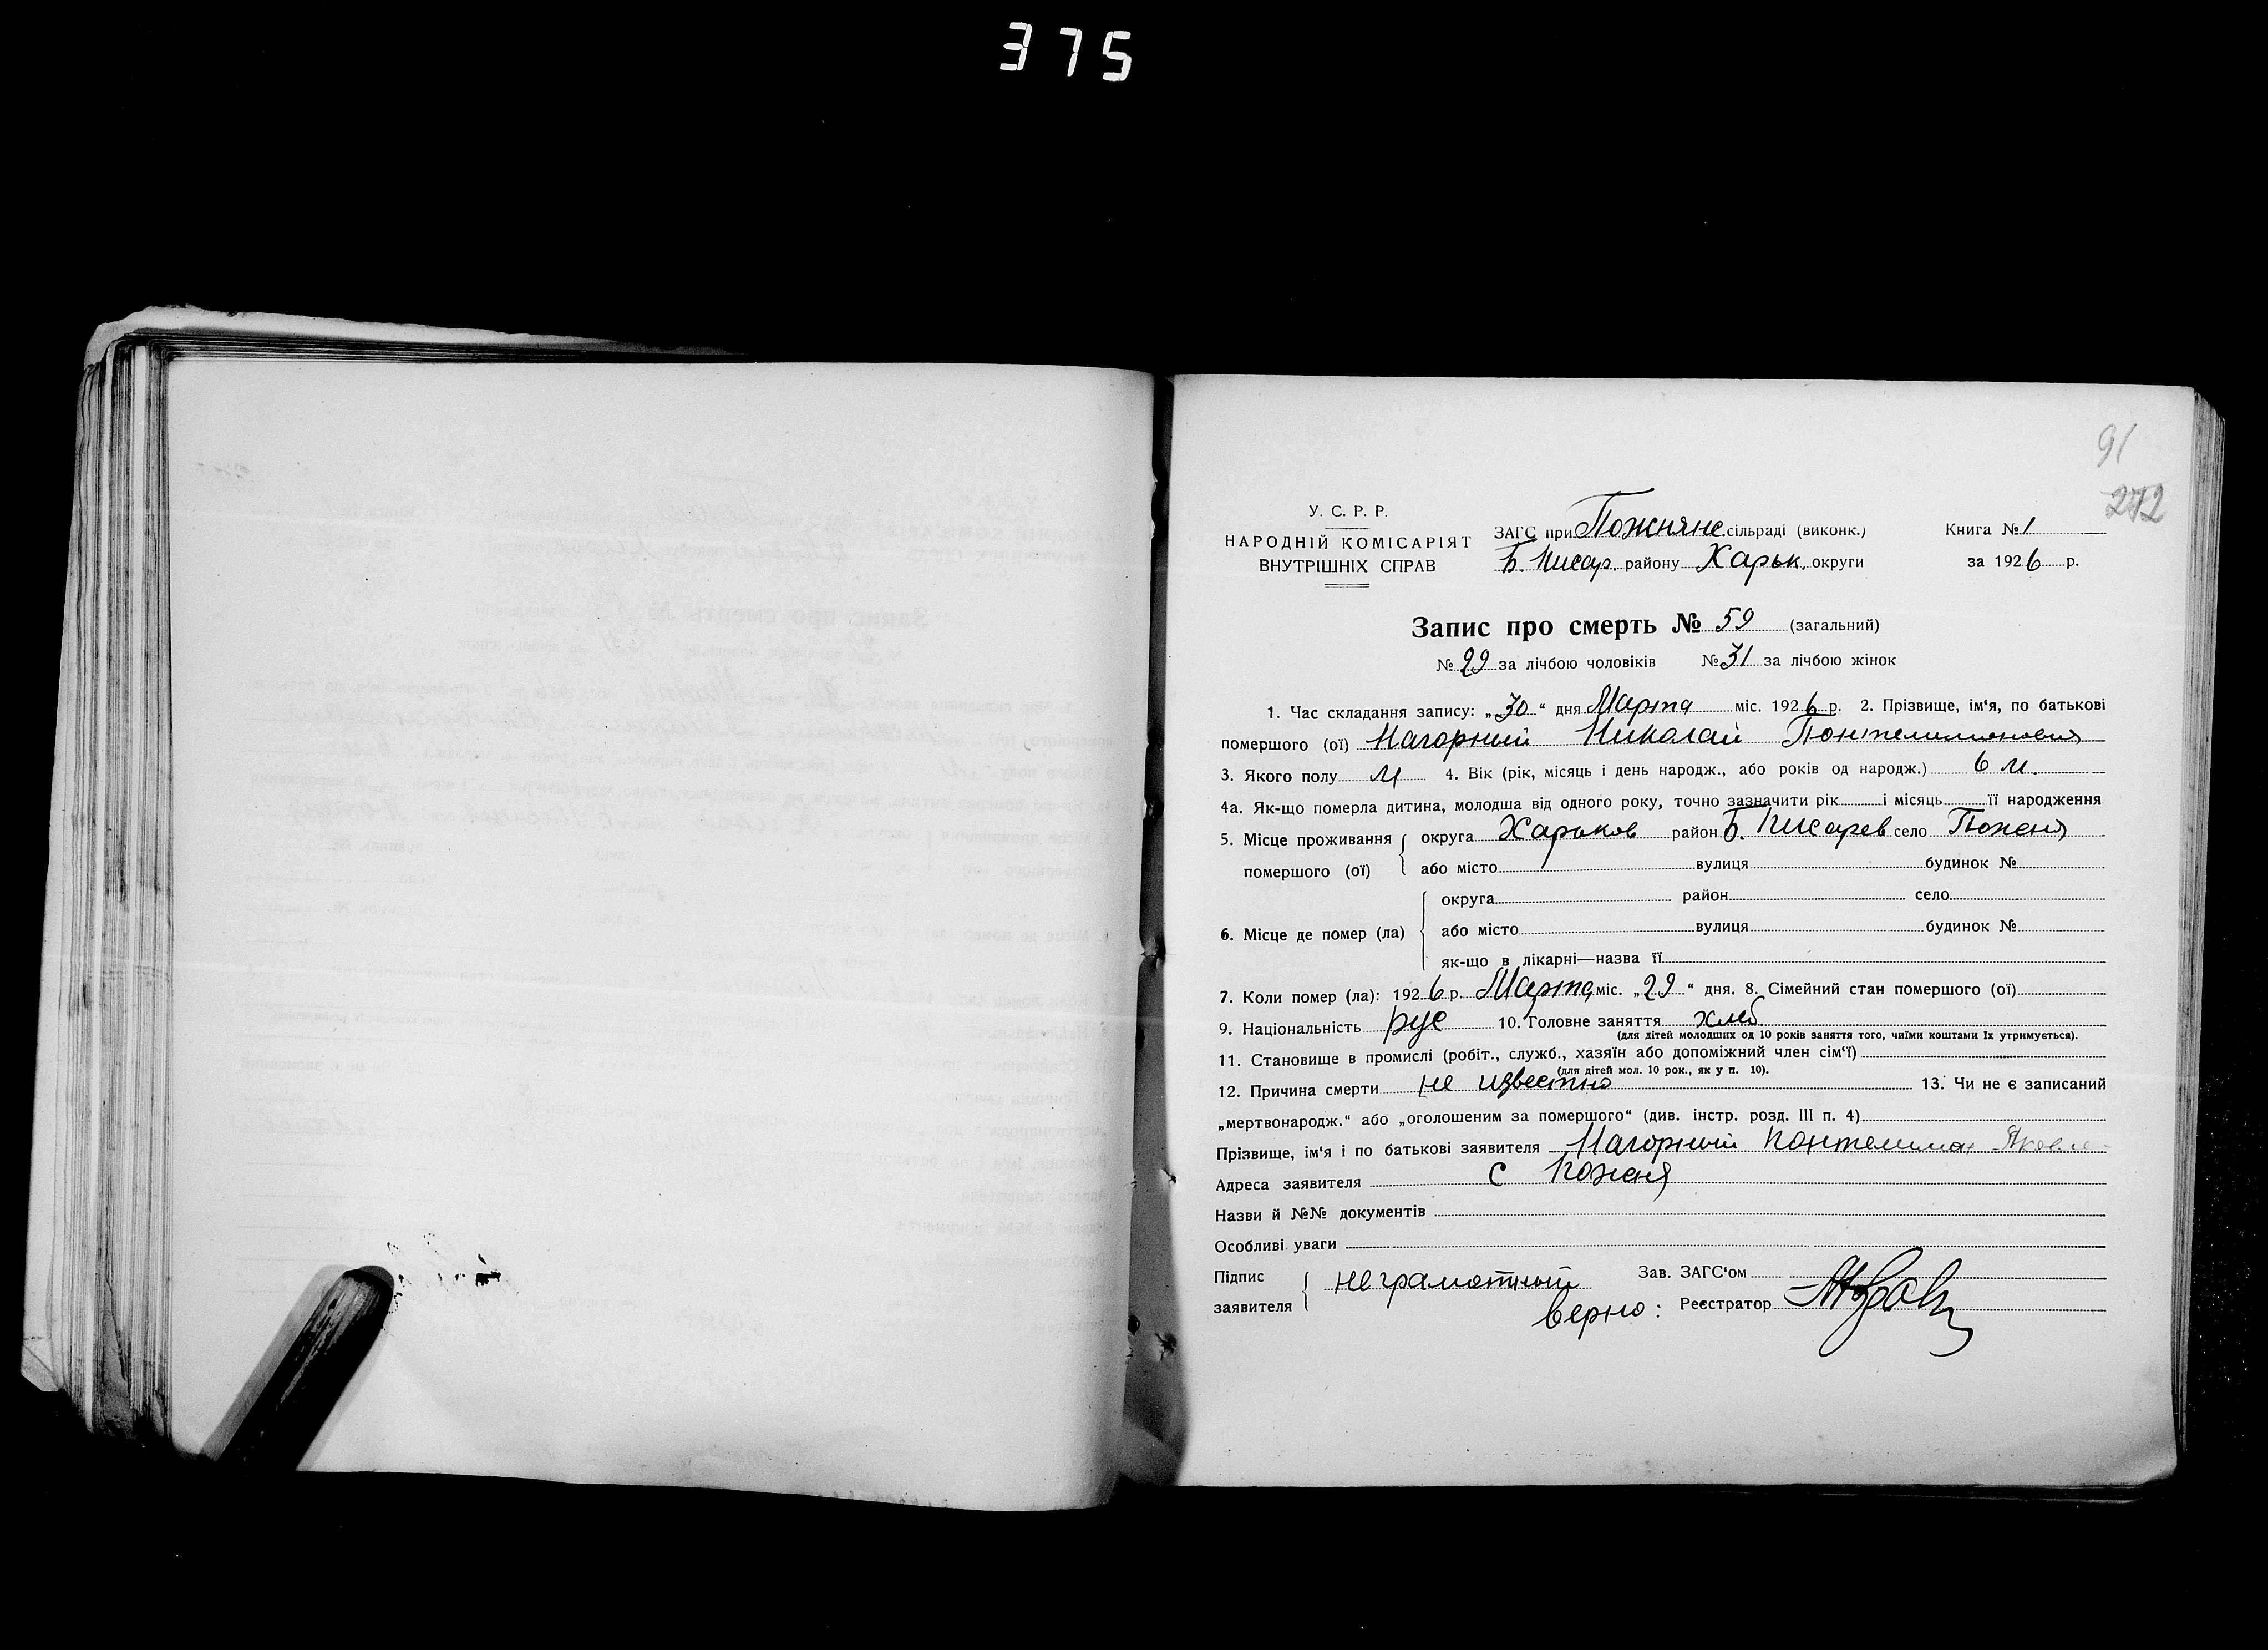 375
91
272
У. С. Р. Р.
НАРОДНІЙ КОМІСАРІЯТ
ВНУТРІШНІХ СПРАВ
ЗАГС при Пожняне сільраді (виконк.)
Б. Писар. району Харьк. округи
Книга № 1
за 1926 р.
Запис про смерть № 59 (загальний)
№ 29 за лічбою чоловіків № 31 за лічбою жінок
1. Час складання запису: „30“ дня Марта міс. 1926 р. 2. Прізвище, ім‘я, по батькові
помершого (ої) Нагорный Николай
3. Якого полу М 4. Вік (рік, місяць і день народж., або років од народж.) 6 м.
4а. Як-що померла дитина, молодша від одного року, точно зазначити рік і місяць її народження
5. Місце проживання помершого (ої) округа Харьков район Б. Писарев село Поженя
або місто вулиця будинок №
6. Місце де помер (ла) округа район село
або місто вулиця будинок №
як-що в лікарні—назва її
7. Коли помер (ла): 1926 р. Марта міс. „29“ дня. 8. Сімейний стан помершого (ої)
9. Національність рус 10. Головне заняття хлеб.
(для дітей молодших од 10 років заняття того, чиїми коштами їх утримується).
11. Становище в промислі (робіт., служб., хазяїн або допоміжний член сім‘ї)
(для дітей мол. 10 рок., як у п. 10).
12. Причина смерти не известно 13. Чи не є записаний
„мертвонародж.“ або „оголошеним за помершого“ (див. інстр. розд. III п. 4)
Прізвище, ім‘я і по батькові заявителя Нагорный Понтелимон
Адреса заявителя с Поженя
Назви й №№ документів
Особливі уваги
Підпис заявителя неграмотный
Зав. ЗАГС‘ом
верно: Реєстратор